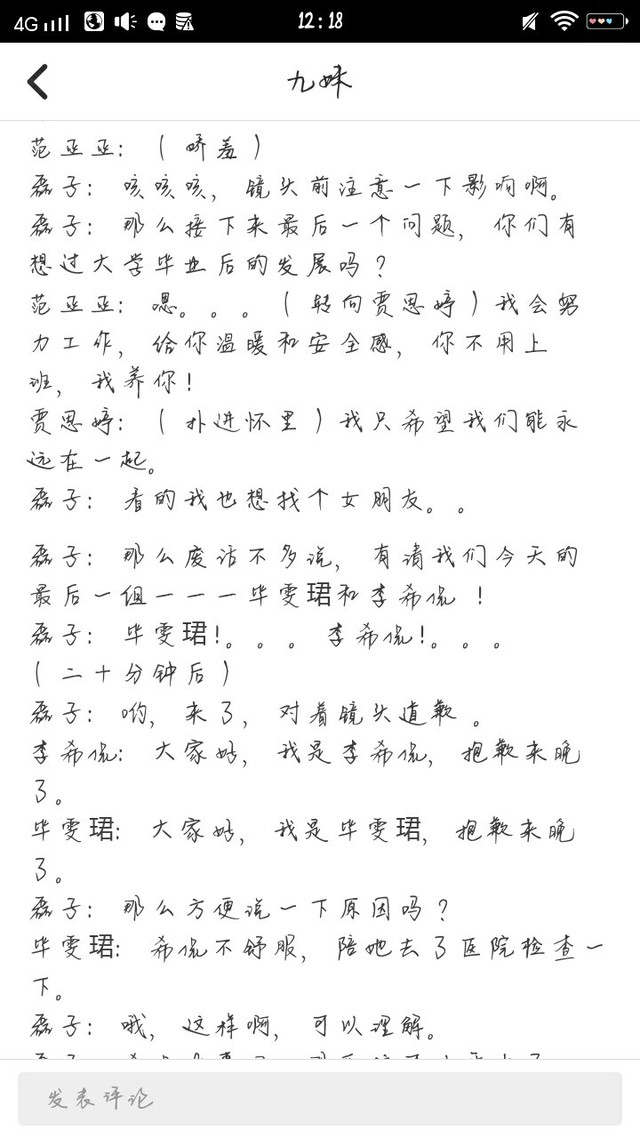 4G
12:18
九妹
范亚亚：（娇羞）
磊子：咳咳咳，镜头前注意一下影响啊。
磊子：那么接下来最后一个问题，你们有
想过大学毕业后的发展吗？
范亚亚：嗯。。。（转向贾思婷）我会努
力工作，给你温暖和安全感，你不用上
班，我养你！
贾思婷：（扑进怀里）我只希望我们能永
远在一起。
磊子：看的我也想找个女朋友。。
磊子：那么废话不多说，有请我们今天的
最后一组一一一毕雯珺和李希侃 ！
磊子：毕雯珺！。。。李希侃！。。。
（二十分钟后）
磊子：哟，来了，对着镜头道歉 。
李希侃：大家好，我是李希侃，抱歉来晚
了。
毕雯珺：大家好，我是毕雯珺，抱歉来晚
了。
磊子：那么方便说一下原因吗？
毕雯珺：希侃不舒服，陪她去了医院检查一
下。
磊子：哦，这样啊，可以理解。
发表评论